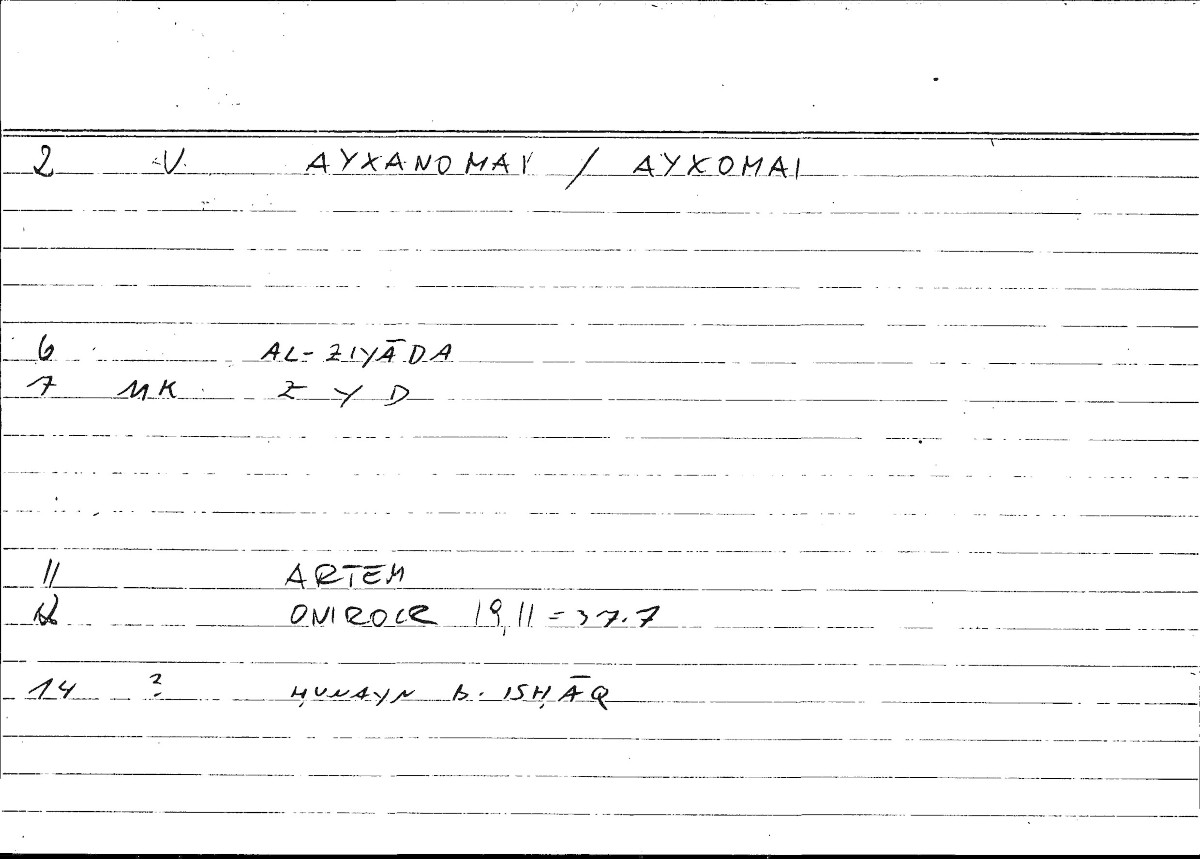 2 V. AYXANOMAI / AYXOMAI
6 AL-ZIYĀDA
7 MK Z Y D
11 ARTEM
12 ONIROCR 19,11 = 37.7
14 ? ḤUNAYN B. ISḤĀQ